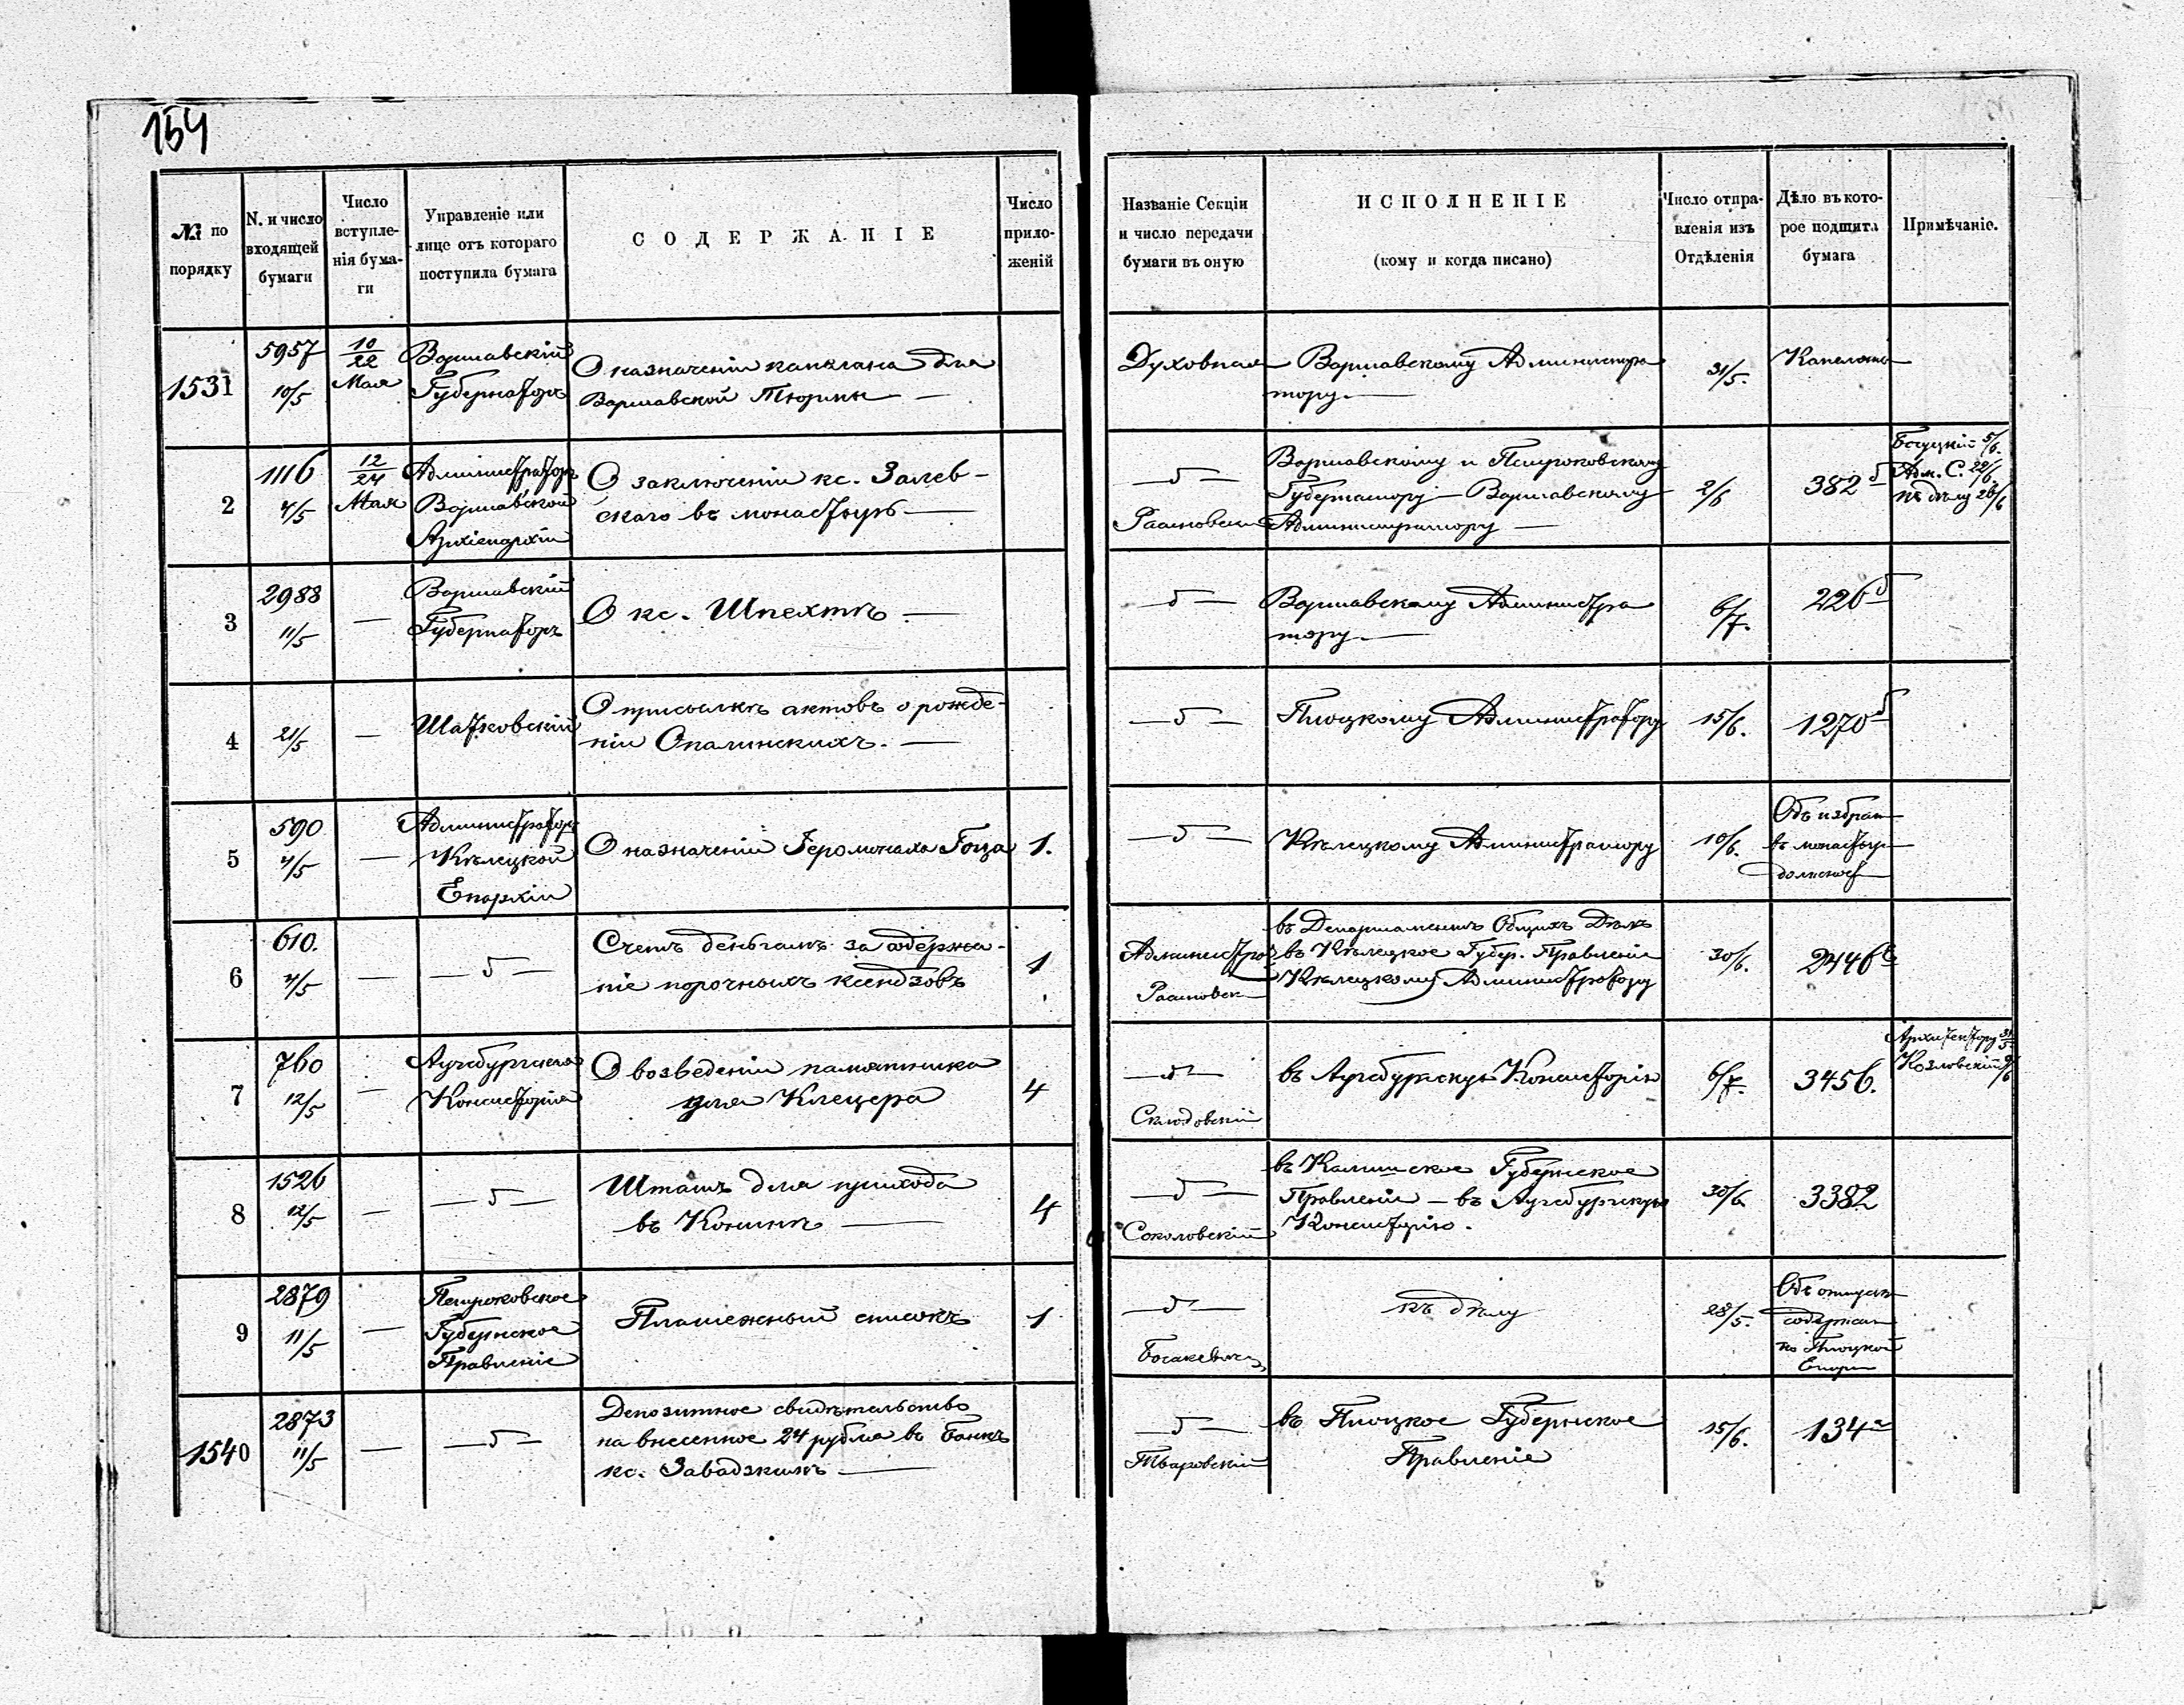 154
№ по порядку
N. и число входящей бумаги
Число вступле-нія бума-ги
Управленіе или лице отъ котораго поступила бумага
СОДЕРЖАНІЕ
Число прило-женій
Названіе Секціи и число передачи бумаги въ оную
ИСПОЛНЕНІЕ
(кому и когда писано)
Число отпра-вленія изъ Отдѣленія
Дѣло въ кото-рое подшита бумага
Примѣчаніе.
1531
5957
10/5
10/22
Мая
Варшавскій
Губернаторъ
О назначеніи капелана для
Варшавской Тюрмы —
Духовная
Варшавскому Администра
тору. —
31/5.
2
1116
4/5
12/24
Мая
Администраторъ
Варшавской
Архіепархіи
О заключеніи кс. Залев-
скаго въ монастырь —
— ъ —
Варшавскому и Петроковскому
Губернатору — Варшавскому
Администратору —
2/6
382
Адм. С. 22/6
къ дѣлу 26/6
3
2988
11/5
—
Варшавскій
Губернаторъ
О кс. Шпехтѣ —
— ъ —
Варшавскому Администра
тору. —
6/7.
226
4
21/5
—
Шатковскій
О присылкѣ актовъ о рожде-
ніи Опалинскихъ. —
— ъ —
Плоцкому Администратору
15/6.
1270
5
590
4/5
—
Администраторъ
Кѣлецкой
Епархіи
О назначеніи Іеромонаха Гоца
1.
— ъ —
Кѣлецкому Администратору
10/6.
Объ избран
въ монастыр
должност
6
610.
4/5
—
— ъ —
Счетъ деньгамъ за содержа-
ніе порочныхъ ксендзовъ
1
Администра
въ Департаментъ Общихъ Дѣлъ
въ Кѣлецкое Губер. Правленіе
Кѣлецкому Администратору
30/6.
2446
7
760
12/5
—
Аугсбургская
Консисторія
О возведеніи памятника
для Клецера
4
— ъ —
Склодовскій
въ Аугсбургскую Консисторію
6/7.
3456.
Архитектору 31/5
Козловскій 9/6
8
1526
12/5
—
— ъ —
Штатъ для прихода
въ Конинѣ —
4
— ъ —
Соколовскій
въ Калишское Губернское
Правленіе — въ Аугсбургскую
Консисторію.
30/6.
3382
9
2879
11/5
—
Петроковское
Губернское
Правленіе
Платежный списокъ
1
— ъ —
къ дѣлу
28/5.
Объ отпускѣ
содержан
по Плоцкой
Епархи
1540
2873
11/5
—
— ъ —
Депозитное свидѣтельство
на внесенное 24 рубля въ Банкъ
кс. Завадзкимъ —
— ъ —
Тваровскій
въ Плоцкое Губернское
Правленіе
15/6.
134